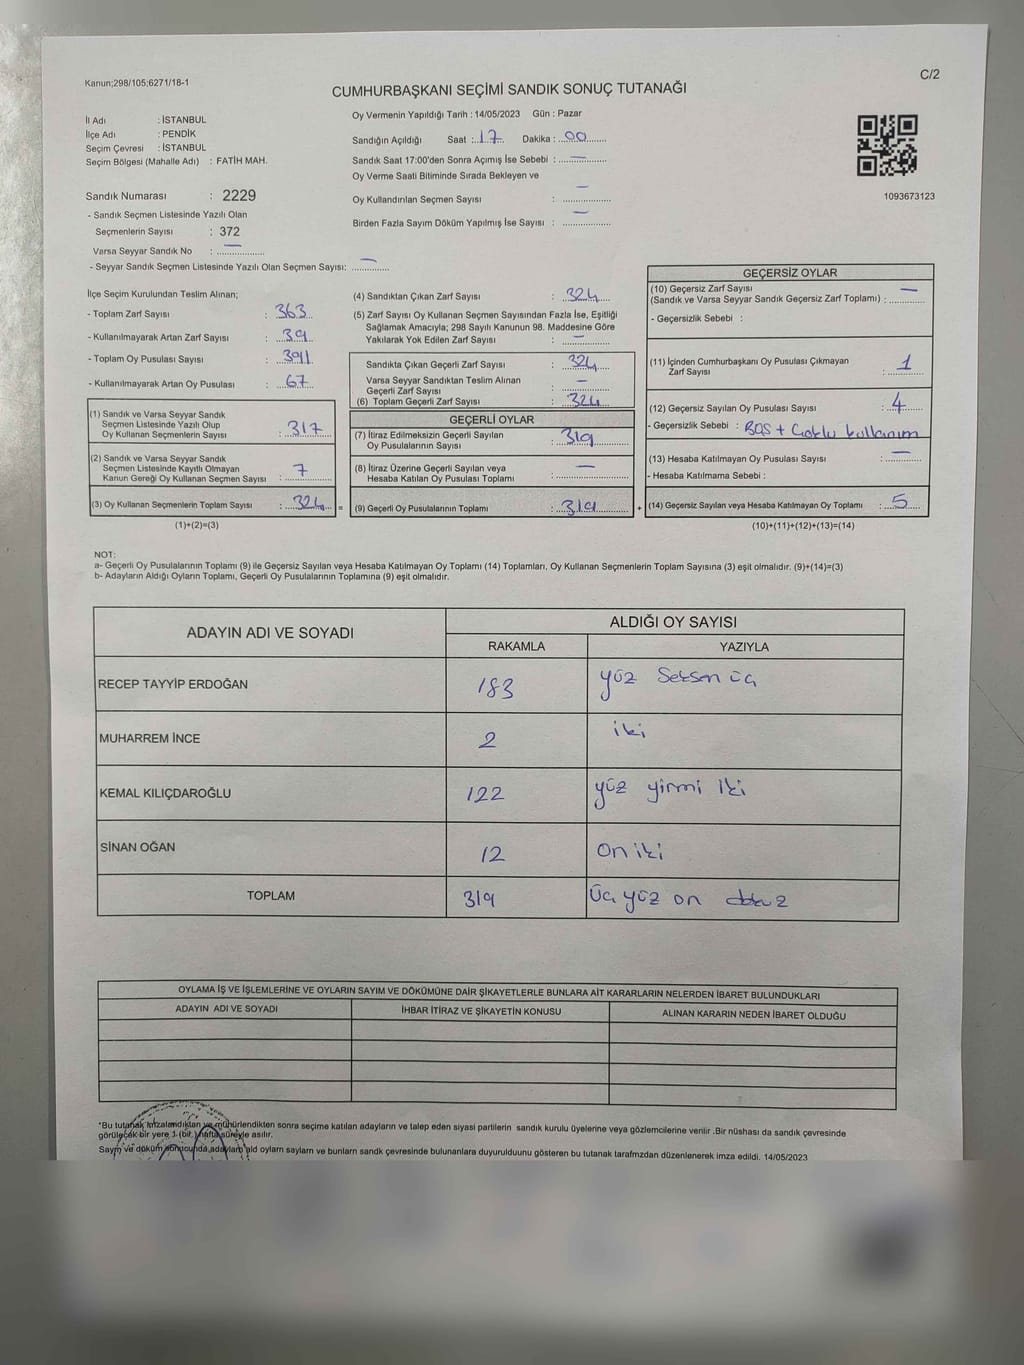 Kanun;298/105;6271/18-1
C/2
CUMHURBAŞKANI SEÇİMİ SANDIK SONUÇ TUTANAĞI
İl Adı : İSTANBUL
İlçe Adı : PENDİK
Seçim Çevresi : İSTANBUL
Seçim Bölgesi (Mahalle Adı) : FATİH MAH.
Sandık Numarası : 2229
- Sandık Seçmen Listesinde Yazılı Olan
Seçmenlerin Sayısı : 372
Varsa Seyyar Sandık No : —
- Seyyar Sandık Seçmen Listesinde Yazılı Olan Seçmen Sayısı: —
Oy Vermenin Yapıldığı Tarih : 14/05/2023 Gün : Pazar
Sandığın Açıldığı Saat : 17 Dakika : 00
Sandık Saat 17:00'den Sonra Açımış İse Sebebi : —
Oy Verme Saati Bitiminde Sırada Bekleyen ve
Oy Kullandırılan Seçmen Sayısı : —
Birden Fazla Sayım Döküm Yapılmış İse Sayısı : —
1093673123
İlçe Seçim Kurulundan Teslim Alınan;
- Toplam Zarf Sayısı : 363
- Kullanılmayarak Artan Zarf Sayısı : 39
- Toplam Oy Pusulası Sayısı : 391
- Kullanılmayarak Artan Oy Pusulası : 67
(1) Sandık ve Varsa Seyyar Sandık
Seçmen Listesinde Yazılı Olup
Oy Kullanan Seçmenlerin Sayısı : 317
(2) Sandık ve Varsa Seyyar Sandık
Seçmen Listesinde Kayıtlı Olmayan
Kanun Gereği Oy Kullanan Seçmen Sayısı : 7
(3) Oy Kullanan Seçmenlerin Toplam Sayısı : 324 =
(1)+(2)=(3)
(4) Sandıktan Çıkan Zarf Sayısı : 324
(5) Zarf Sayısı Oy Kullanan Seçmen Sayısından Fazla İse, Eşitliği
Sağlamak Amacıyla; 298 Sayılı Kanunun 98. Maddesine Göre
Yakılarak Yok Edilen Zarf Sayısı : —
Sandıkta Çıkan Geçerli Zarf Sayısı : 324
Varsa Seyyar Sandıktan Teslim Alınan
Geçerli Zarf Sayısı : —
(6) Toplam Geçerli Zarf Sayısı : 324
GEÇERLİ OYLAR
(7) İtiraz Edilmeksizin Geçerli Sayılan
Oy Pusulalarının Sayısı : 319
(8) İtiraz Üzerine Geçerli Sayılan veya
Hesaba Katılan Oy Pusulası Toplamı : —
(9) Geçerli Oy Pusulalarının Toplamı : 319 +
GEÇERSİZ OYLAR
(10) Geçersiz Zarf Sayısı
(Sandık ve Varsa Seyyar Sandık Geçersiz Zarf Toplamı) : —
- Geçersizlik Sebebi :
(11) İçinden Cumhurbaşkanı Oy Pusulası Çıkmayan
Zarf Sayısı : 1
(12) Geçersiz Sayılan Oy Pusulası Sayısı : 4
- Geçersizlik Sebebi : Boş + Çoklu kullanım
(13) Hesaba Katılmayan Oy Pusulası Sayısı : —
- Hesaba Katılmama Sebebi :
(14) Geçersiz Sayılan veya Hesaba Katılmayan Oy Toplamı : 5
(10)+(11)+(12)+(13)=(14)
NOT:
a- Geçerli Oy Pusulalarının Toplamı (9) ile Geçersiz Sayılan veya Hesaba Katılmayan Oy Toplamı (14) Toplamları, Oy Kullanan Seçmenlerin Toplam Sayısına (3) eşit olmalıdır. (9)+(14)=(3)
b- Adayların Aldığı Oyların Toplamı, Geçerli Oy Pusulalarının Toplamına (9) eşit olmalıdır.
ADAYIN ADI VE SOYADI
ALDIĞI OY SAYISI
RAKAMLA YAZIYLA
RECEP TAYYİP ERDOĞAN 183 yüz Seksen üç
MUHARREM İNCE 2 iki
KEMAL KILIÇDAROĞLU 122 yüz yirmi iki
SİNAN OĞAN 12 on iki
TOPLAM 319 Üç yüz on dokuz
OYLAMA İŞ VE İŞLEMLERİNE VE OYLARIN SAYIM VE DÖKÜMÜNE DAİR ŞİKAYETLERLE BUNLARA AİT KARARLARIN NELERDEN İBARET BULUNDUKLARI
ADAYIN ADI VE SOYADI İHBAR İTİRAZ VE ŞİKAYETİN KONUSU ALINAN KARARIN NEDEN İBARET OLDUĞU
*Bu tutanak imzalandıktan ve mühürlendikten sonra seçime katılan adayların ve talep eden siyasi partilerin sandık kurulu üyelerine veya gözlemcilerine verilir .Bir nüshası da sandık çevresinde
görülecek bir yere 1 (bir) hafta süreyle asılır.
Sayım ve döküm sonucunda adayların ald oyların sayların ve bunların sandk çevresinde bulunanlara duyurulduunu gösteren bu tutanak tarafmzdan düzenlenerek imza edildi. 14/05/2023